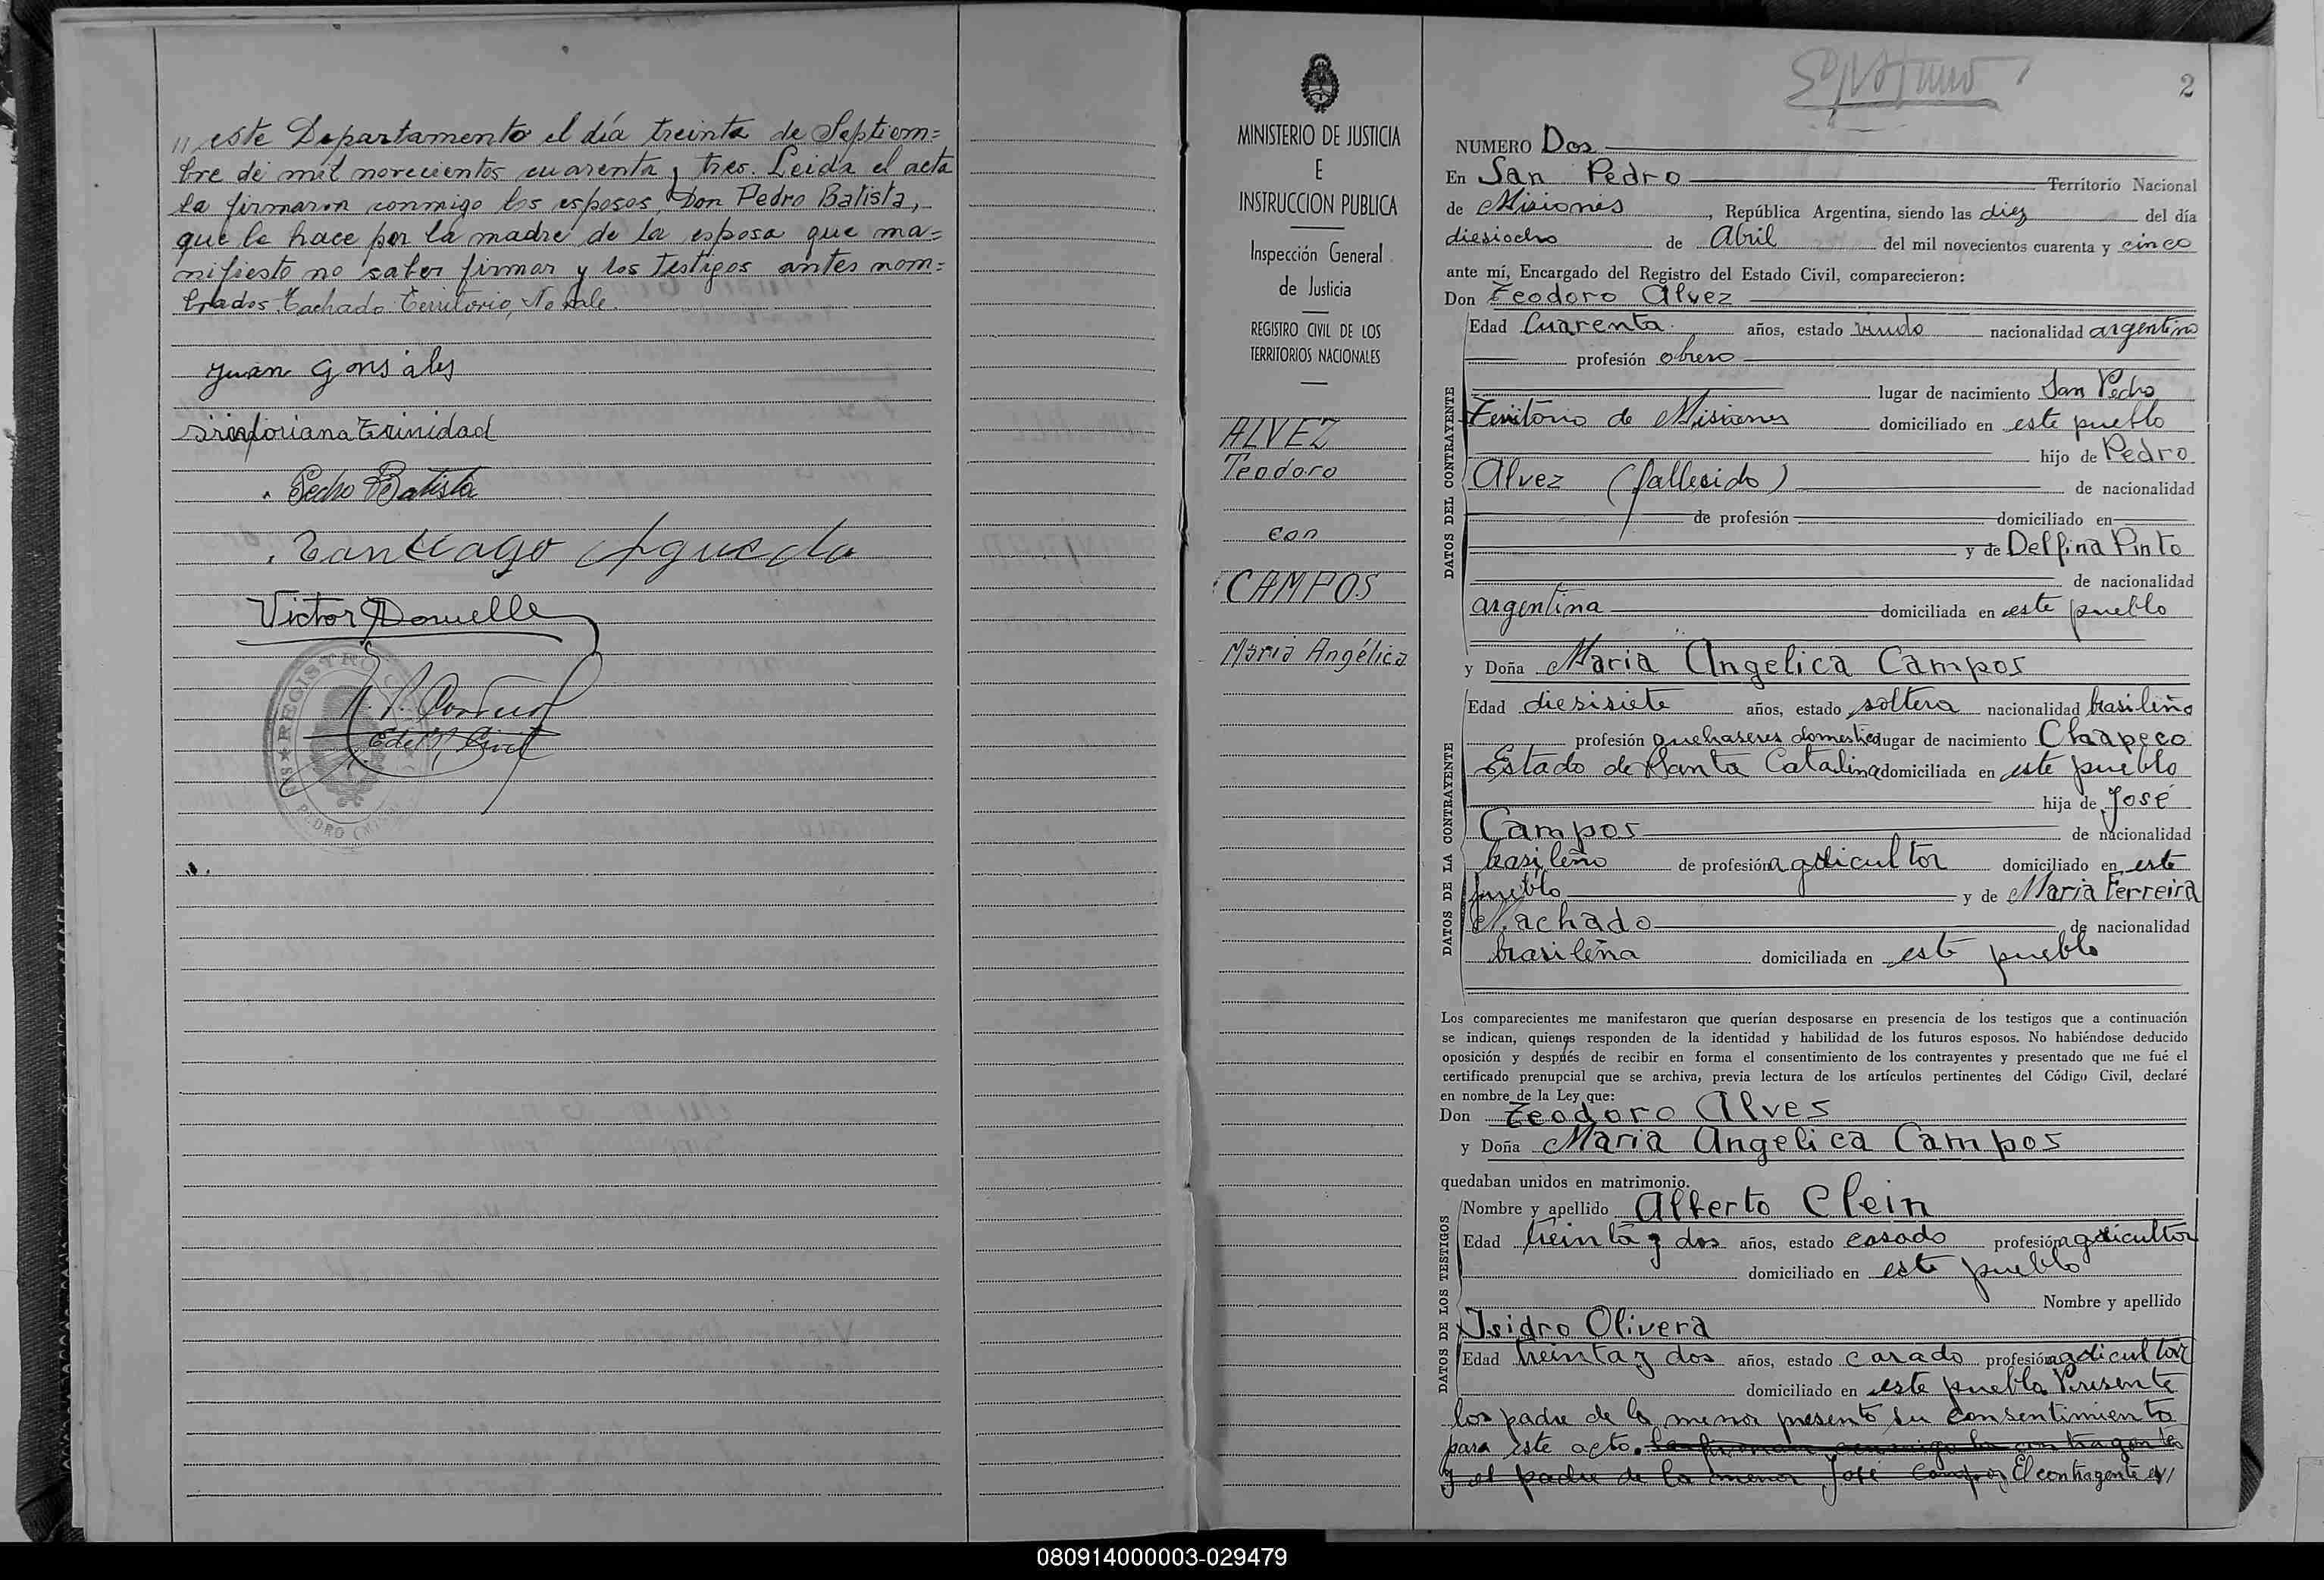 " este Departamento el día treinta de Septiem=
bre de mil novecientos cuarenta y tres. Leida el acta
la firmaron conmigo los esposos, Don Pedro Batista,
que lo hace por la madre de la esposa que ma=
nifiesto no saber firmar y los testigos antes nom=
brados. Tachado: Territorio, No vale.
Juan Gonsáles
Sinforiana Trinidad
Pedro Batista
Santiago Agueda
Victor
REGISTRO
E. del R. Civil
SAN PEDRO
MINISTERIO DE JUSTICIA
E
INSTRUCCION PUBLICA
Inspección General
de Justicia
REGISTRO CIVIL DE LOS
TERRITORIOS NACIONALES
ALVEZ
Teodoro
con
CAMPOS
María Angélica
2
NUMERO Dos
En San Pedro Territorio Nacional
de Misiones, República Argentina, siendo las diez del día
diesiocho de Abril del mil novecientos cuarenta y cinco
ante mí, Encargado del Registro del Estado Civil, comparecieron:
Don Teodoro Alvez
DATOS DEL CONTRAYENTE
Edad Cuarenta años, estado viudo nacionalidad argentino
profesión obrero
lugar de nacimiento San Pedro
Territorio de Misiones domiciliado en este pueblo
hijo de Pedro
Alvez (fallesido) de nacionalidad
de profesión domiciliado en
y de Delfina Pinto
de nacionalidad
argentina domiciliada en este pueblo
y Doña Maria Angelica Campos
DATOS DE LA CONTRAYENTE
Edad diesisiete años, estado soltera nacionalidad brasileña
profesión quehaseres domestico lugar de nacimiento Chapeco
Estado de Santa Catalina domiciliada en este pueblo
hija de José
Campos de nacionalidad
brasileño de profesión agricultor domiciliado en este
pueblo y de Maria Ferreira
Machado de nacionalidad
brasileña domiciliada en este pueblo
Los comparecientes me manifestaron que querían desposarse en presencia de los testigos que a continuación
se indican, quienes responden de la identidad y habilidad de los futuros esposos. No habiéndose deducido
oposición y después de recibir en forma el consentimiento de los contrayentes y presentado que me fué el
certificado prenupcial que se archiva, previa lectura de los artículos pertinentes del Código Civil, declaré
en nombre de la Ley que:
Don Teodoro Alves
y Doña Maria Angelica Campos
quedaban unidos en matrimonio.
DATOS DE LOS TESTIGOS
Nombre y apellido Alberto Clein
Edad treinta y dos años, estado casado profesión agricultor
domiciliado en este pueblo
Nombre y apellido
Isidro Olivera
Edad treinta y dos años, estado casado profesión agricultor
domiciliado en este pueblo Presente
los padre de la menor presento su consentimiento
para este acto. La firman conmigo los contrayentes
y el padre de la menor José Campos El contrayente
080914000003-029479